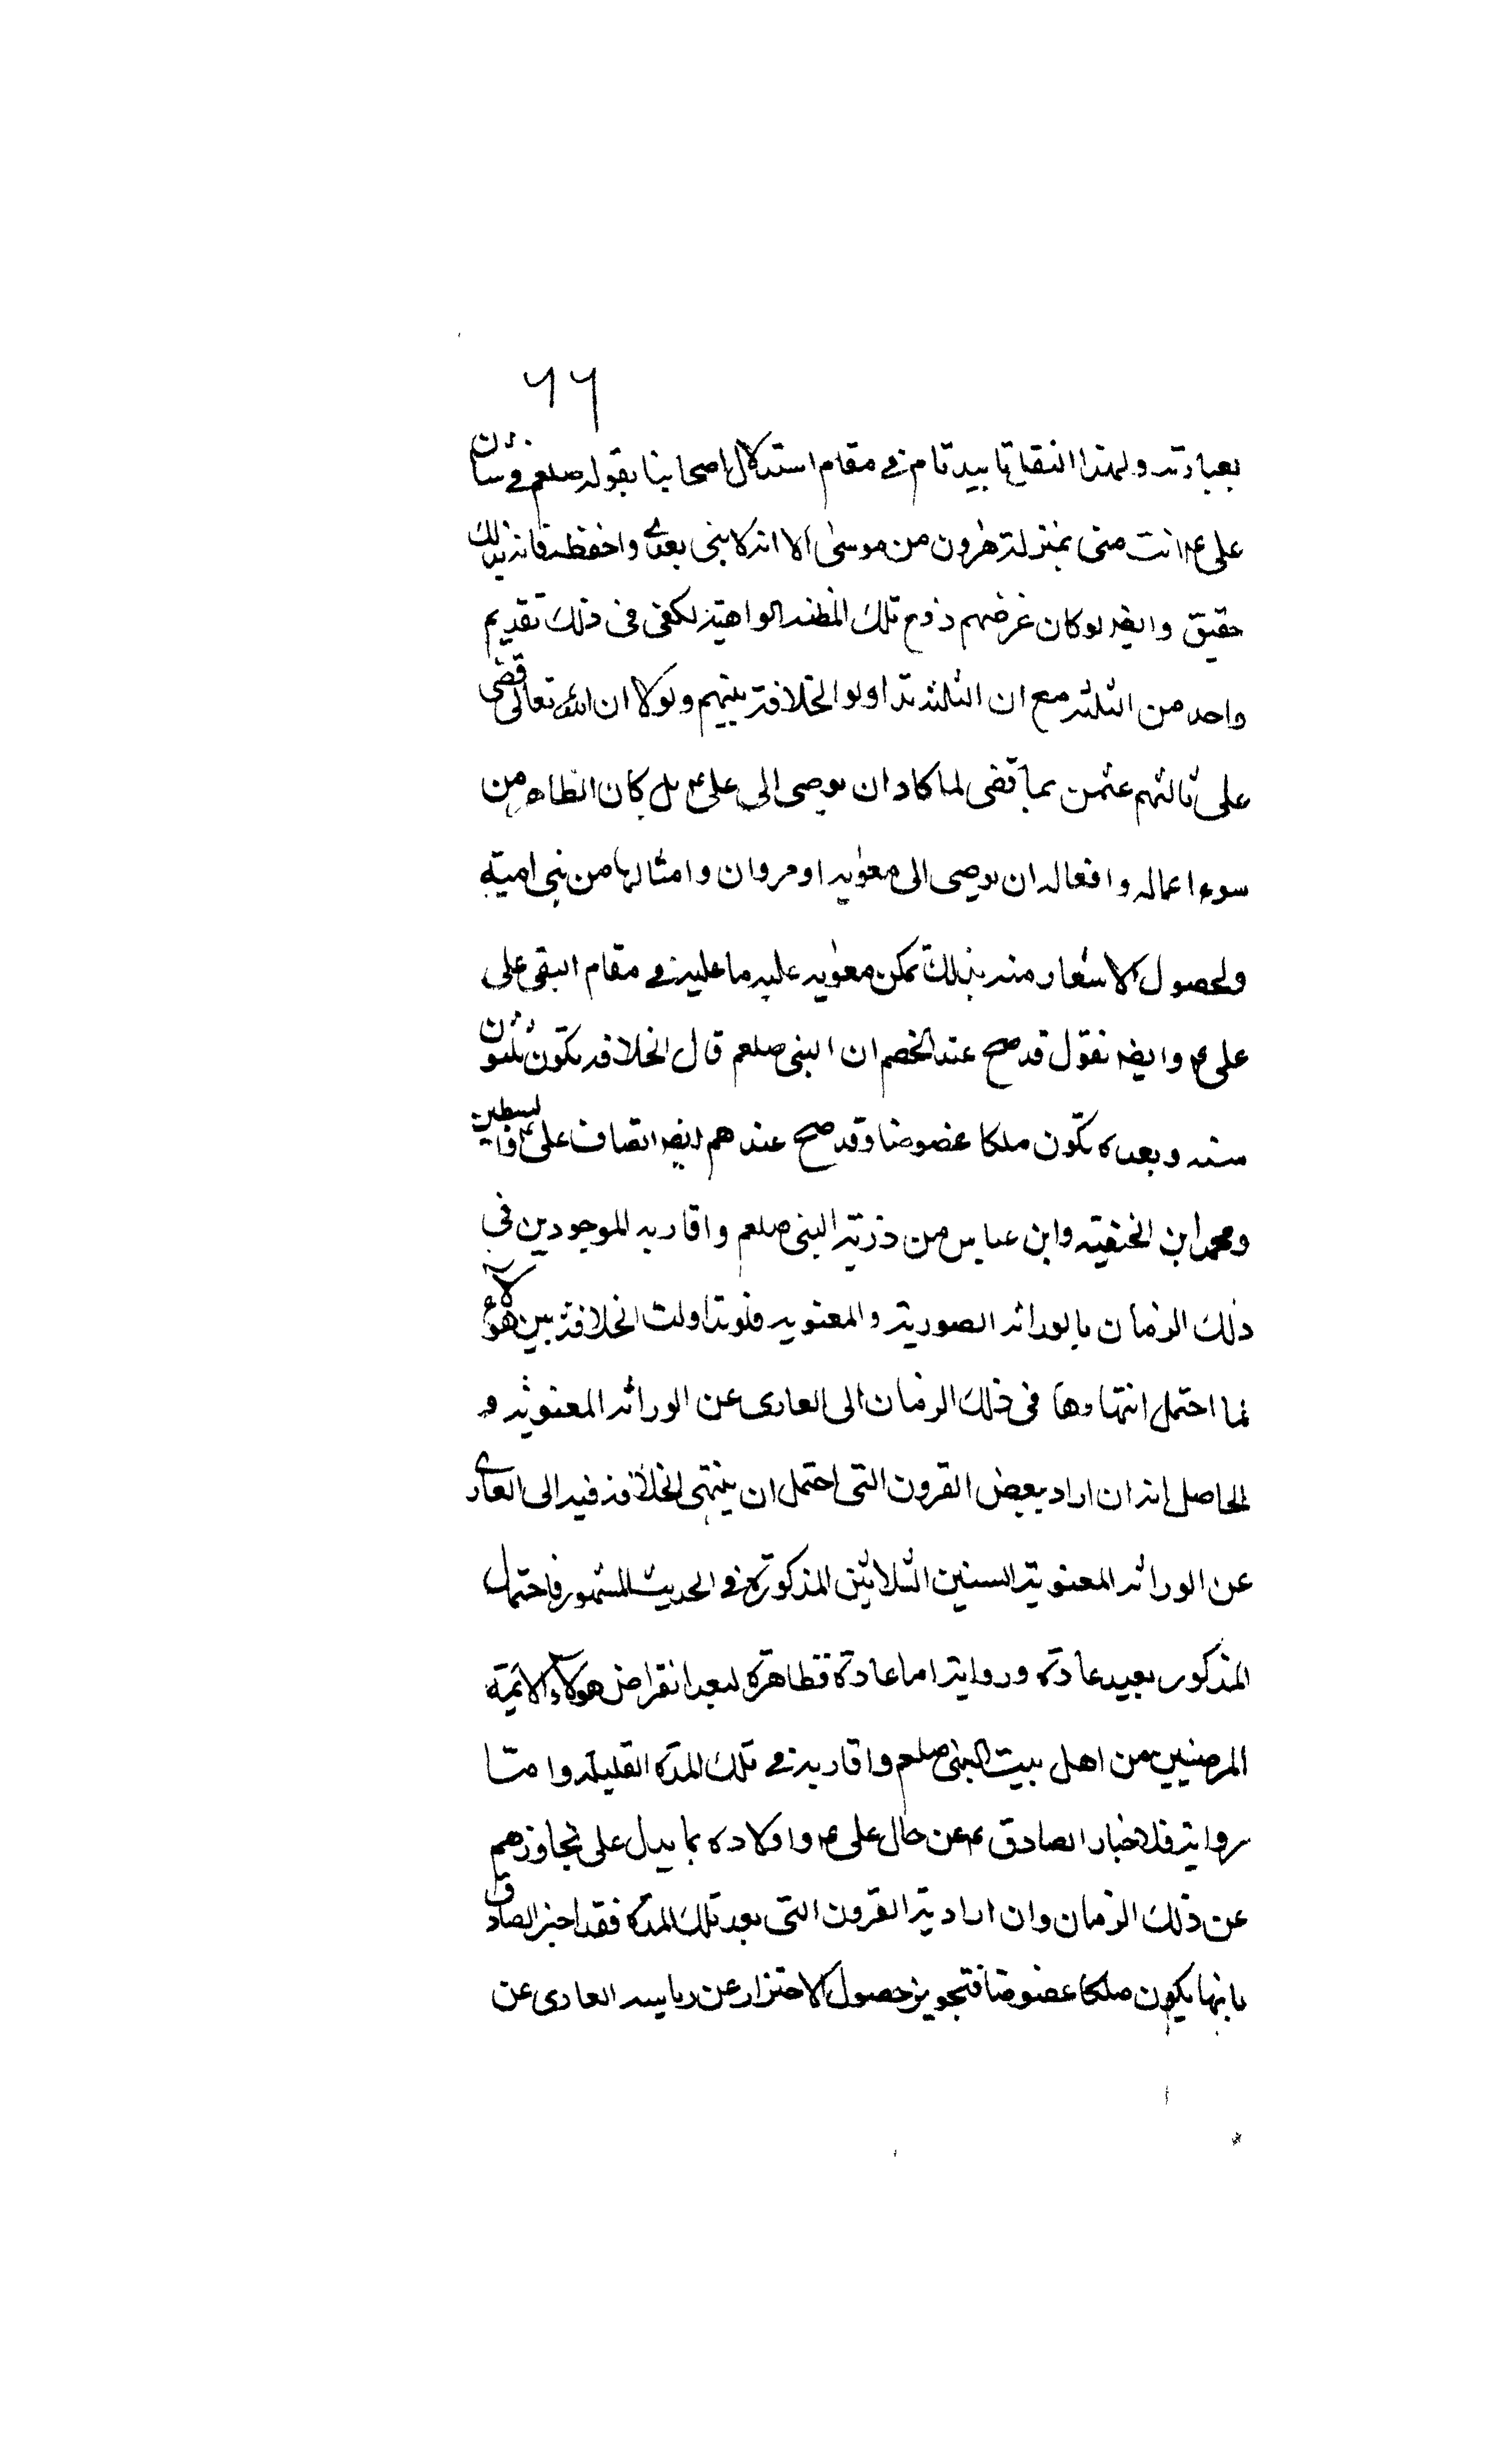 ٦٦
بعبادته ولهذا النقاء تاييد تام فى مقام استدلال اصحابنا بقوله صلعم فى شان
على ع انت منى بمنزلة هرون من موسى الا انه لا نبى بعدى واحفظه فانه بذلك
حقيق وايضا لوكان غرضهم دفع تلك المظنه الواهية لكفى فى ذلك تقديم
واحد من الثلثه مع ان الثلثه تداولوا الخلافة بينهم ولولا ان الله تعالى قضى
على ثالثهم عثمن بما قضى لما كاد ان يوصى الى على ع بل كان الظاهر من
سوء اعماله وافعاله ان يوصى الى معويه او مروان وامثالها من بنى امية
ولحصول الاشعار منه بذلك تمكن معويه عليه ما عليه فى مقام البغى على
على ع وايضا نقول قد صح عند الخصم ان النبى صلعم قال الخلافه تكون ثلثون
سنه وبعده تكون ملكا عضوضا وقد صح عندهم ايضا اتصاف على ع والسبطين
ومحمد ابن الحنفيته وابن عباس من ذرية النبى صلعم واقاربه الموجودين فى
ذلك الزمان بالوراثه الصورية والمعنويه فلو تداولت الخلافة بين هؤلاء
لما احتمل انتهاوها فى ذلك الزمان الى العارى عن الوراثه المعنويه و
الحاصل انه ان اراد ببعض القرون التى احتمل ان ينتهى الخلافه فيه الى العارى
عن الوراثه المعنوية السنين الثلاثين المذكورة فى الحديث المشهور فاحتمال
المذكور بعيد عادة ورواية اما عادة فظاهرة لبعد انقراض هولاء الائمة
المرضيين من اهل بيت النبى صلعم واقاربه فى تلك المدة القليله واما
رواية فلاخبار الصادق ع عن حال على ع واولاده بما يدل على تجاوزهم
عن ذلك الزمان وان اراد به القرون التى بعد تلك المدة فقد اخبر الصادق
بانها يكون ملكا عضوضا فتجويز حصول الاحتراز عن رياسه العارى عن